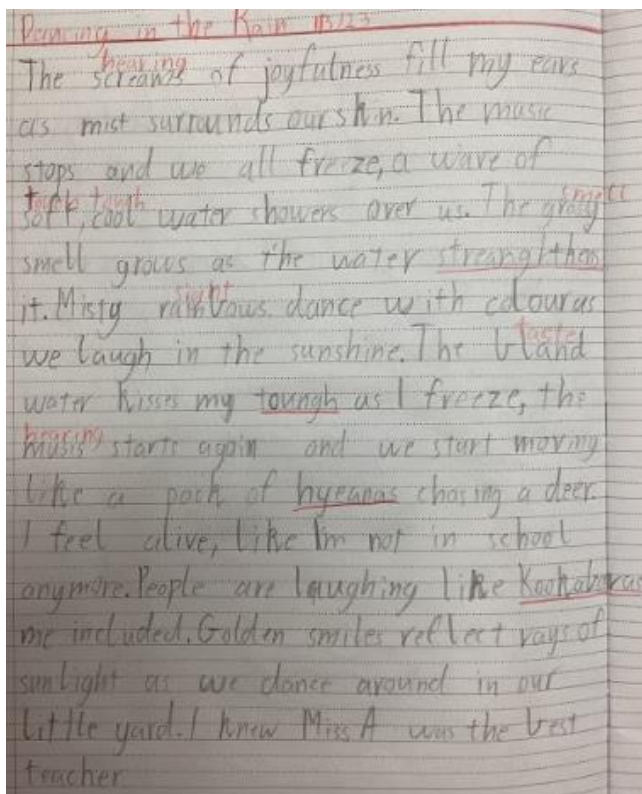 Dancing in the Rain 113/23
hearing
The screams of joyfulness fill my ears
as mist surrounds our skin. The music
stops and we all freeze, a wave of
touch touch smell
soft, cool water showers over us. The grassy
smell grows as the water streangthens
sight
it. Misty rainbows dance with colour as
taste
we laugh in the sunshine. The bland
water kisses my toungh as I freeze, the
hearing
music starts again and we start moving
like a pack of hyeanas chasing a deer.
I feel alive, like I'm not in school
anymore. People are laughing like Kookaburas
me included. Golden smiles reflect rays of
sunlight as we dance around in our
little yard. I knew Miss A was the best
teacher